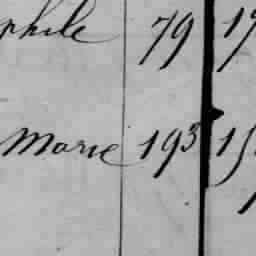 phile 79
Marie 193